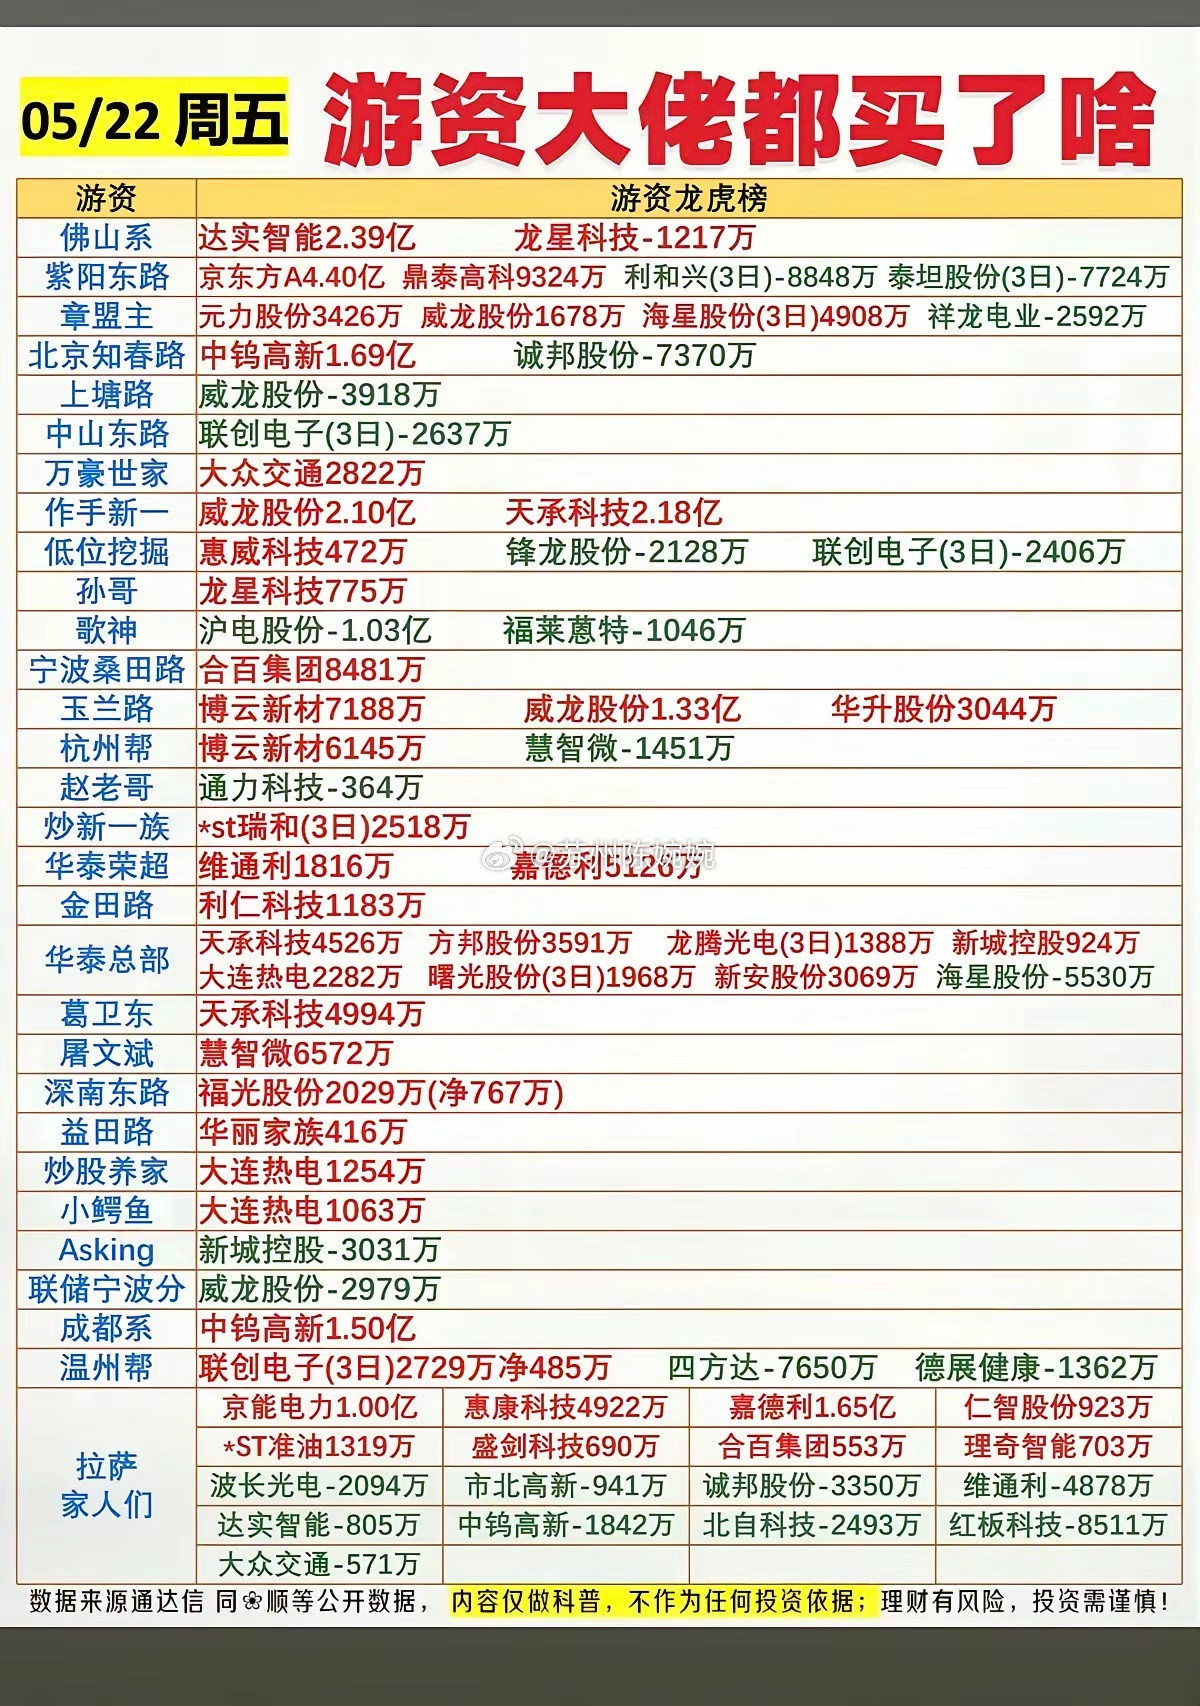 05/22 周五 游资大佬都买了啥
游资 游资龙虎榜
佛山系 达实智能2.39亿 龙星科技-1217万
紫阳东路 京东方A4.40亿 鼎泰高科9324万 利和兴(3日)-8848万 泰坦股份(3日)-7724万
章盟主 元力股份3426万 威龙股份1678万 海星股份(3日)4908万 祥龙电业-2592万
北京知春路 中钨高新1.69亿 诚邦股份-7370万
上塘路 威龙股份-3918万
中山东路 联创电子(3日)-2637万
万豪世家 大众交通2822万
作手新一 威龙股份2.10亿 天承科技2.18亿
低位挖掘 惠威科技472万 锋龙股份-2128万 联创电子(3日)-2406万
孙哥 龙星科技775万
歌神 沪电股份-1.03亿 福莱蒽特-1046万
宁波桑田路 合百集团8481万
玉兰路 博云新材7188万 威龙股份1.33亿 华升股份3044万
杭州帮 博云新材6145万 慧智微-1451万
赵老哥 通力科技-364万
炒新一族 *st瑞和(3日)2518万
华泰荣超 维通利1816万 嘉德利5126万
@苏州陈婉婉
金田路 利仁科技1183万
华泰总部 天承科技4526万 方邦股份3591万 龙腾光电(3日)1388万 新城控股924万
大连热电2282万 曙光股份(3日)1968万 新安股份3069万 海星股份-5530万
葛卫东 天承科技4994万
屠文斌 慧智微6572万
深南东路 福光股份2029万(净767万)
益田路 华丽家族416万
炒股养家 大连热电1254万
小鳄鱼 大连热电1063万
Asking 新城控股-3031万
联储宁波分 威龙股份-2979万
成都系 中钨高新1.50亿
温州帮 联创电子(3日)2729万净485万 四方达-7650万 德展健康-1362万
拉萨家人们 京能电力1.00亿 惠康科技4922万 嘉德利1.65亿 仁智股份923万
*ST准油1319万 盛剑科技690万 合百集团553万 理奇智能703万
波长光电-2094万 市北高新-941万 诚邦股份-3350万 维通利-4878万
达实智能-805万 中钨高新-1842万 北自科技-2493万 红板科技-8511万
大众交通-571万
数据来源通达信 同❀顺等公开数据，内容仅做科普，不作为任何投资依据；理财有风险，投资需谨慎！